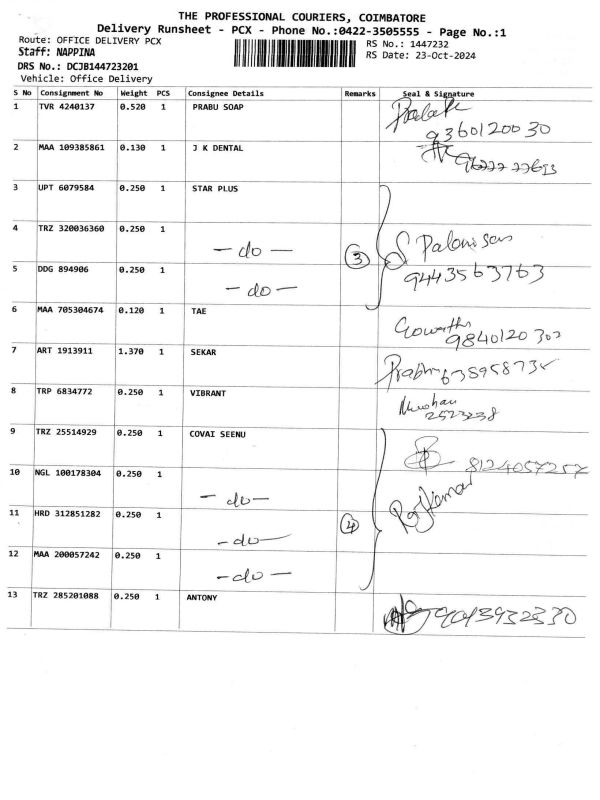 THE PROFESSIONAL COURIERS, COIMBATORE
Delivery Runsheet - PCX - Phone No.:0422-3505555 - Page No.:1
Route: OFFICE DELIVERY PCX
RS No.: 1447232
Staff: NAPPINA
RS Date: 23-Oct-2024
DRS No.: DCJB144723201
Vehicle: Office Delivery
S No Consignment No Weight PCS Consignee Details Remarks Seal & Signature
1 TVR 4240137 0.520 1 PRABU SOAP
9360120030
2 MAA 109385861 0.130 1 J K DENTAL
3 UPT 6079584 0.250 1 STAR PLUS
4 TRZ 320036360 0.250 1
- do - 3 S. Palanisan
5 DDG 894906 0.250 1 9443563763
- do -
6 MAA 705304674 0.120 1 TAE
Gowatham
9840120302
7 ART 1913911 1.370 1 SEKAR
Prabhu
8 TRP 6834772 0.250 1 VIBRANT
2523238
9 TRZ 25514929 0.250 1 COVAI SEENU
8124057257
10 NGL 100178304 0.250 1
- do - Raj Kumar
11 HRD 312851282 0.250 1 4
- do -
12 MAA 200057242 0.250 1
- do -
13 TRZ 285201088 0.250 1 ANTONY
9043932330